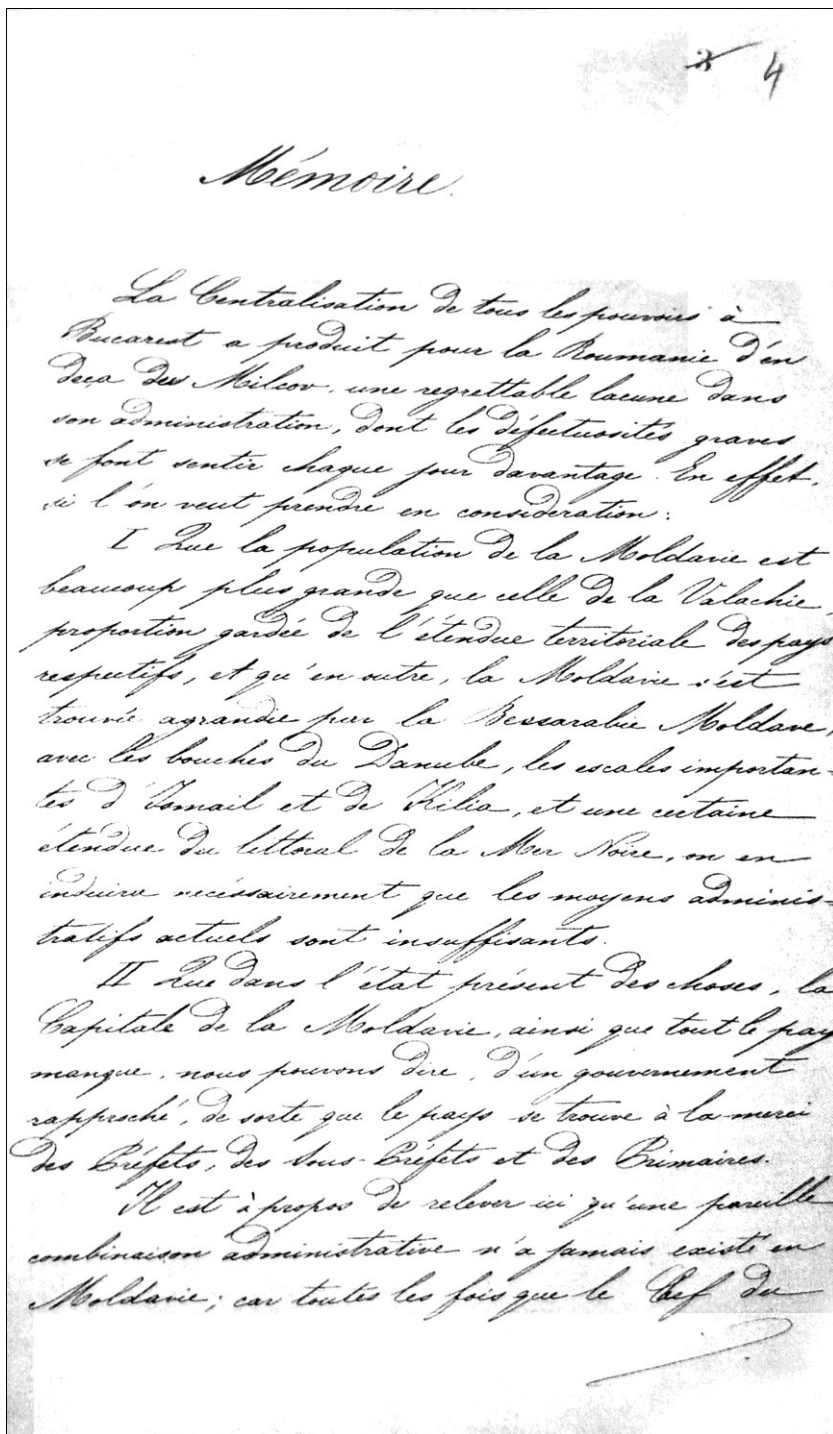 3 4
Mémoire.
La Centralisation de tous les pouvoirs à
Bucarest a produit pour la Roumanie d'en
deça des Milcov, une regrettable lacune dans
son administration, dont les défectuosités graves
se font sentir chaque jour davantage. En effet,
si l'on veut prendre en consideration:
I Que la population de la Moldavie est
beaucoup plus grande que celle de la Valachie,
proportion gardée de l'étendue territoriale des pays
respectifs, et qu'en outre, la Moldavie s'est
trouvée agrandie par la Bessarabie Moldave,
avec les bouches du Danube, les escales importan-
tes d'Ismail et de Kilia, et une certaine
étendue du littoral de la Mer Noire, on en
induira nécessairement que les moyens adminis-
tratifs actuels sont insuffisants.
II Que dans l'état présent des choses, la
Capitale de la Moldavie, ainsi que tout le pay
manque, nous pouvons dire, d'un gouvernement
rapproché, de sorte que le pays se trouve à la merci
des Préfets, des Sous-Préfets et des Primaires.
Il est à propos de relever ici qu'une pareille
combinaison administrative n'a jamais existé en
Moldavie; car toutes les fois que le Chef du